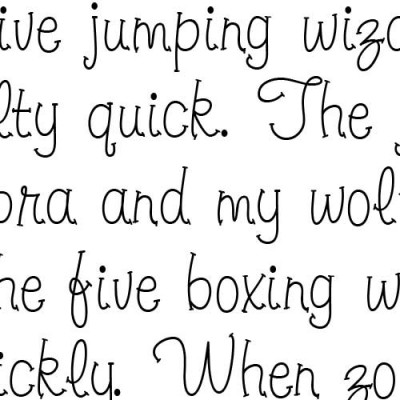 ive jumping wiza
lty quick. The
ora and my wol
he five boxing w
ickly. When zo